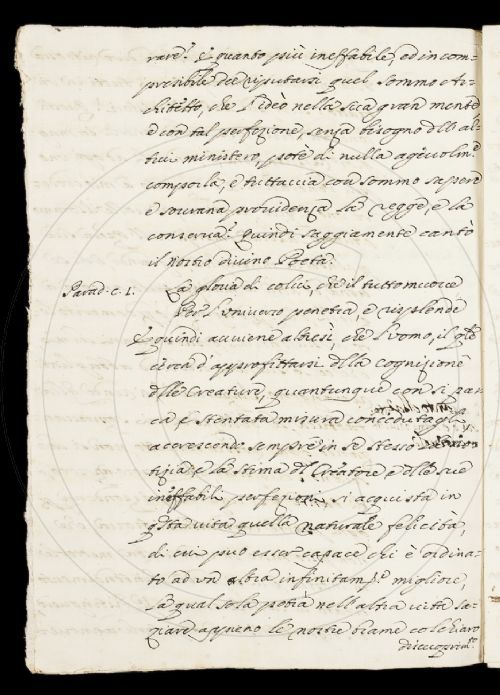 rare? E quanto più ineffabile, ed incom=
presibile dee riputarsi quel Sommo Ar=
chitetto, che l'ideò nella sua gran mente
e con tal perfezione, senza bisogno dell' al=
trui ministero, potè di nulla agevolm.e
comporla, e tuttavia con sommo sapere
e sovrana providenza la regge, e la
conserva? Quindi saggiamente cantò
il nostro divino Poeta.
Parad. c. I.
La gloria di colui, che il tutto muove
Per l'universo penetra, e risplende
E quindi avviene altresì, che l'uomo, il qle
cerca d'approfittarsi della Cognizione
delle Creature, quantunque con sì par
ca e stentata misura
accrescendo sempre in se stesso
tizia e la stima del Creatore e delle sue
ineffabili perfezioni si acquista in
qsta vita quella naturale felicità,
di cui può esser capace chi è ordina=
to ad un altra infinitam.te migliore,
la qual sola potrà nell'altra vita sa=
ziare appieno le nostre brame col chiaro